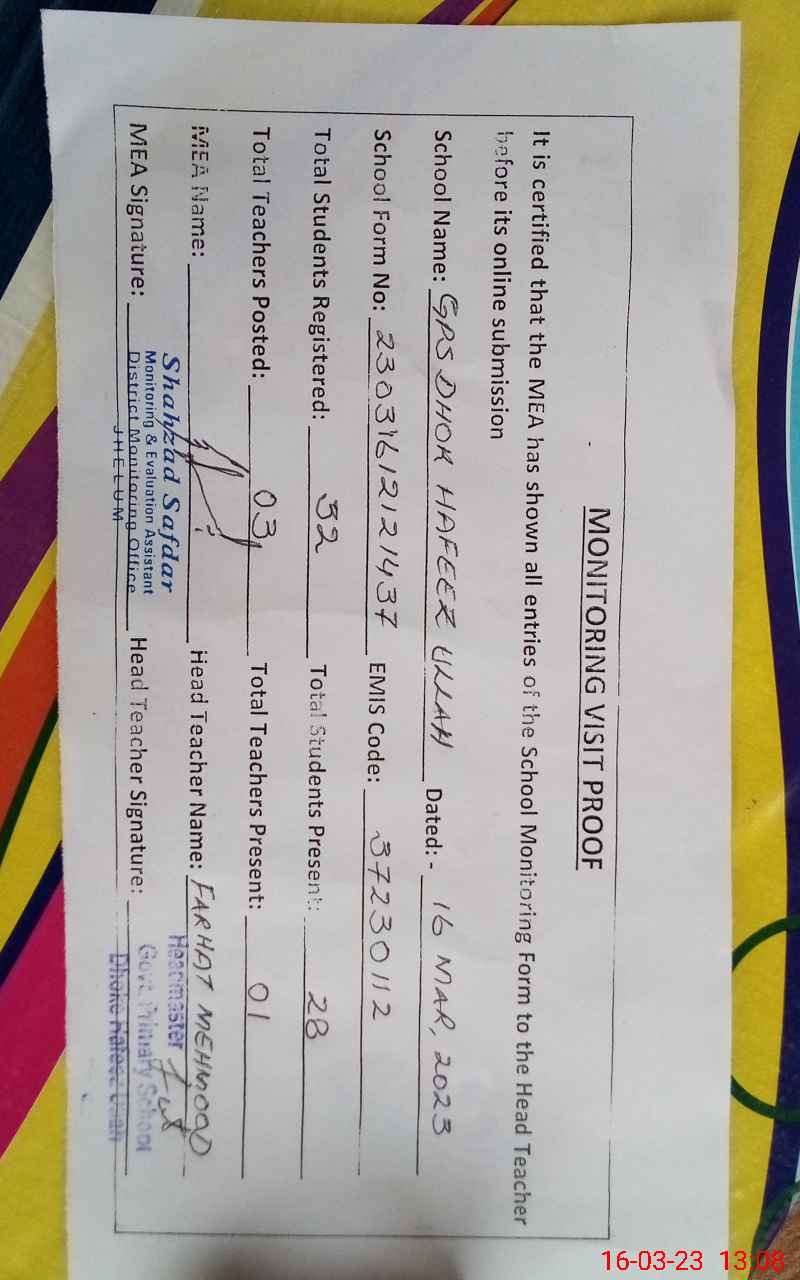 MONITORING VISIT PROOF
It is certified that the MEA has shown all entries of the School Monitoring Form to the Head Teacher
before its online submission
School Name: GPS DHOK HAFEEZ ULLAH Dated:- 16 MAR, 2023
School Form No: 23031612121437 EMIS Code: 37230112
Total Students Registered: 32 Total Students Present: 28
Total Teachers Posted: 03 Total Teachers Present: 01
MEA Name: Head Teacher Name: FARHAT MEHMOOD
Shahzad Safdar
Monitoring & Evaluation Assistant
District Monitoring Office
JHELUM
MEA Signature: Head Teacher Signature:
Headmaster
Govt. Primary School
Dhoke Hafeez Ullah
16-03-23 13:08